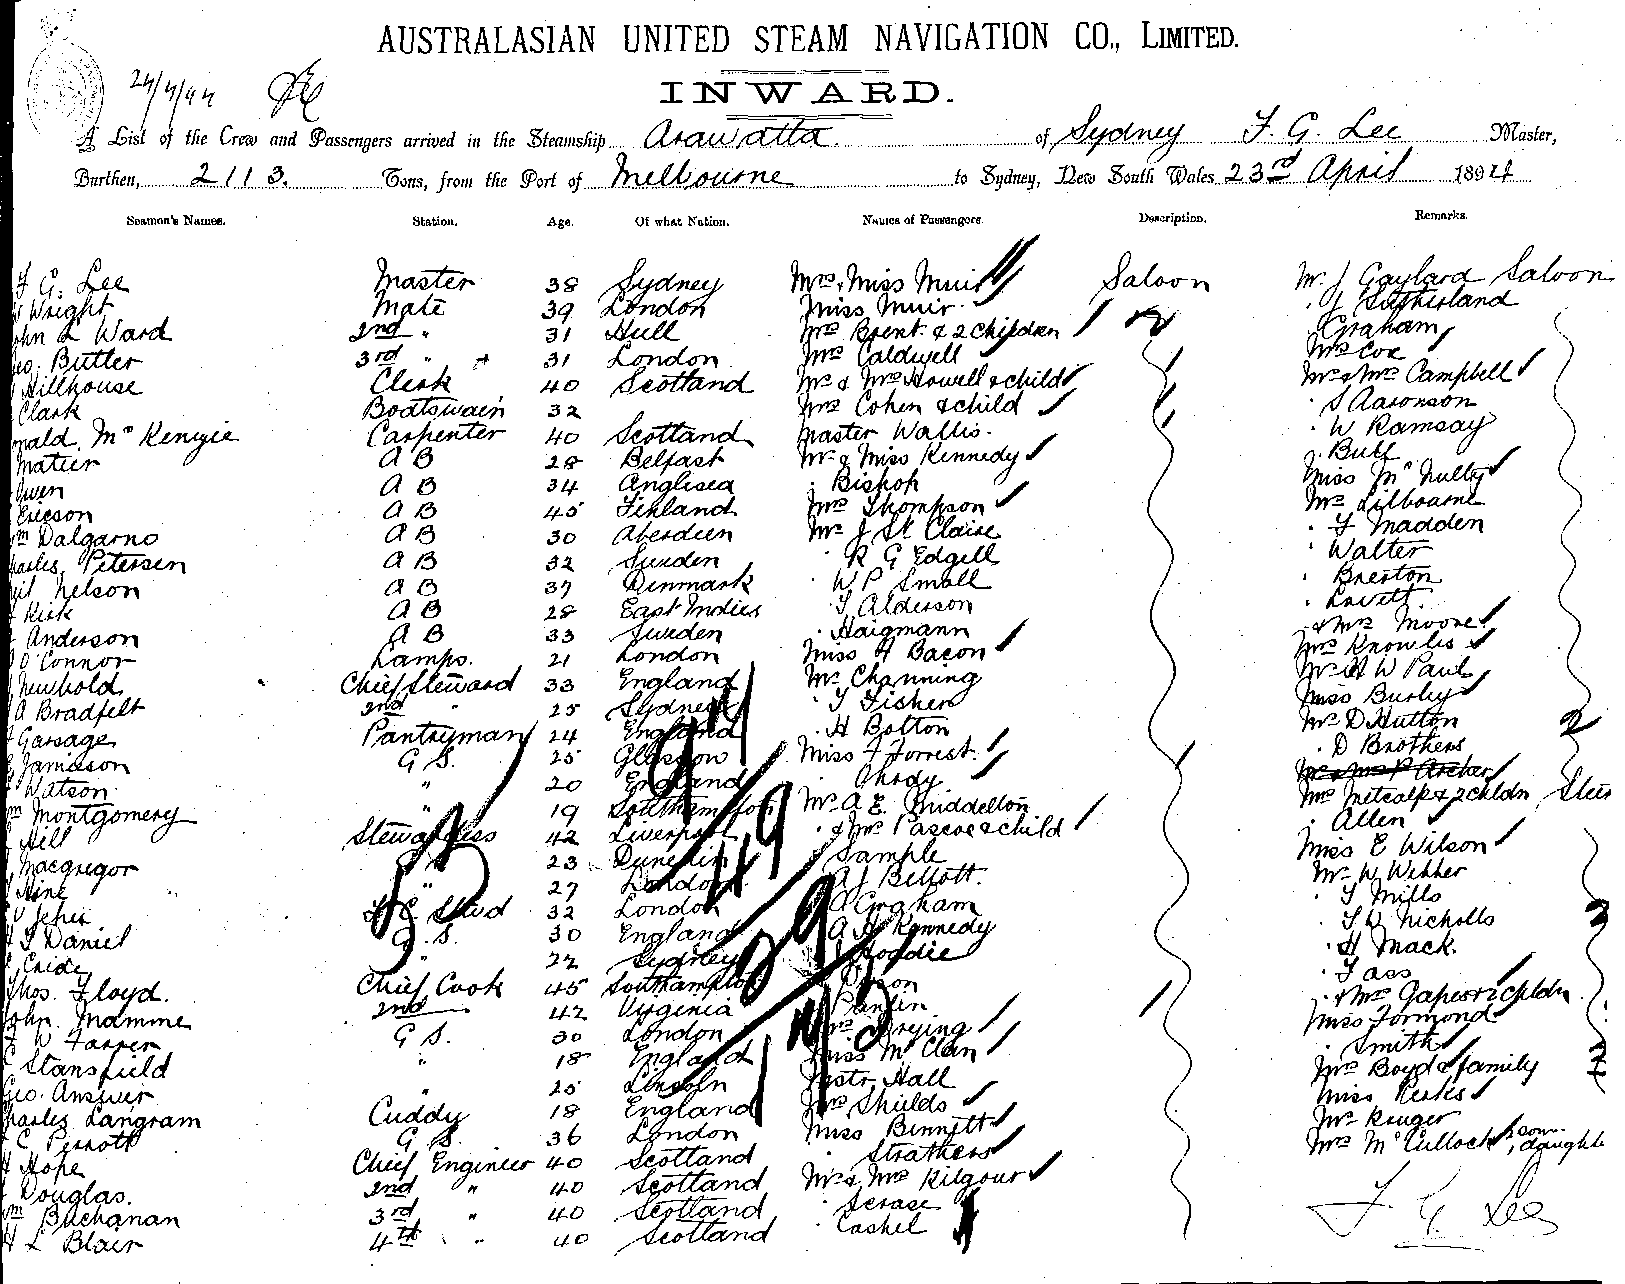 AUSTRALASIAN UNITED STEAM NAVIGATION CO., LIMITED.
24/4/94
INWARD.
A List of the Crew and Passengers arrived in the Steamship Arawatta of Sydney F. G. Lee Master,
Burthen, 2113. Tons, from the Port of Melbourne to Sydney, New South Wales 23rd April 1894
Seamen's Names. Station. Age. Of what Nation. Names of Passengers. Description. Remarks.
F G. Lee Master 38 Sydney Mrs, Miss Muir Saloon Mr. J Gaylard Saloon
Wright Mate 39 London Miss Muir. Sutherland
John L Ward 2nd " 31 Hull Mrs Brent & 2 children Graham
Geo. Butler 3rd " 31 London Mrs Caldwell Mrs Cox
Hillhouse Clerk 40 Scotland Mr & Mrs Howell & child Mr & Mrs Campbell
Clark Boatswain 32 Mrs Cohen & child S Aaronson
Donald McKenzie Carpenter 40 Scotland Master Wallis. W Ramsay
Matier A B 28 Belfast Mr & Miss Kennedy J. Bull
Owen A B 34 Anglisea Bishop Miss McNulty
Ericson A B 45 Finland Mrs Thompson Mr Lilbourne
Wm Dalgarno A B 30 Aberdeen Mr J St Claire F Madden
Charles Petersen A B 32 Sweden R G Edgell Walter
Nelson A B 37 Denmark W P Small Brerton
Kirk A B 28 East Indies T Alderson Lovett
Anderson A B 33 Sweden Haigmann & Mrs Moore
O'Connor Lamps. 21 London Miss H Bacon Mrs Knowles
Newbold Chief Steward 33 England Mr Channing Mr H W Paul
A Bradfelt 2nd " 25 Sydney T Fisher Miss Burley
Garsage Pantryman 24 England H Botton Mr D Hutton
Jamieson G S. 25 Glasgow Miss F Forrest. D Brothers
Watson " 20 England Mr & Mrs P Archer
Wm Montgomery " 19 Southampton Mr A. E. Middleton Mrs Metcalf & 2 chldn
Hill Stewardess 42 Liverpool & Mrs Pascoe & child Allen
Macgregor 23 Dunedin Sample Miss E Wilson
Hine " 27 London A J Bellott. Mr W Webber
32 London Graham T Mills
T Daniel G. S. 30 England A H Kennedy T W Nicholls
" 22 Sydney Hoddie H Mack.
Thos. Floyd. Chief Cook 45 Southampton
John. 2nd 42 Virginia & Mrs Gapes & 2 chldn
W Farrer G S. 30 London Miss Formond
Stansfield " 18 England Miss McClan Smith
Geo. Answer " 25 Lincoln Mstr Hall Mrs Boyd & family
Charles Langram Cuddy 18 England Mrs Shields Miss Kerks
C Perrott G S. 36 London Miss Binnett Mr Kruger
H Hope Chief Engineer 40 Scotland Strathers Mrs McCulloch, son, daughter
Douglas. 2nd " 40 Scotland Mr & Mrs Kilgour
Wm Buchanan 3rd " 40 Scotland Scrase
H L Blair 4th " 40 Scotland Cashel
F G Lee